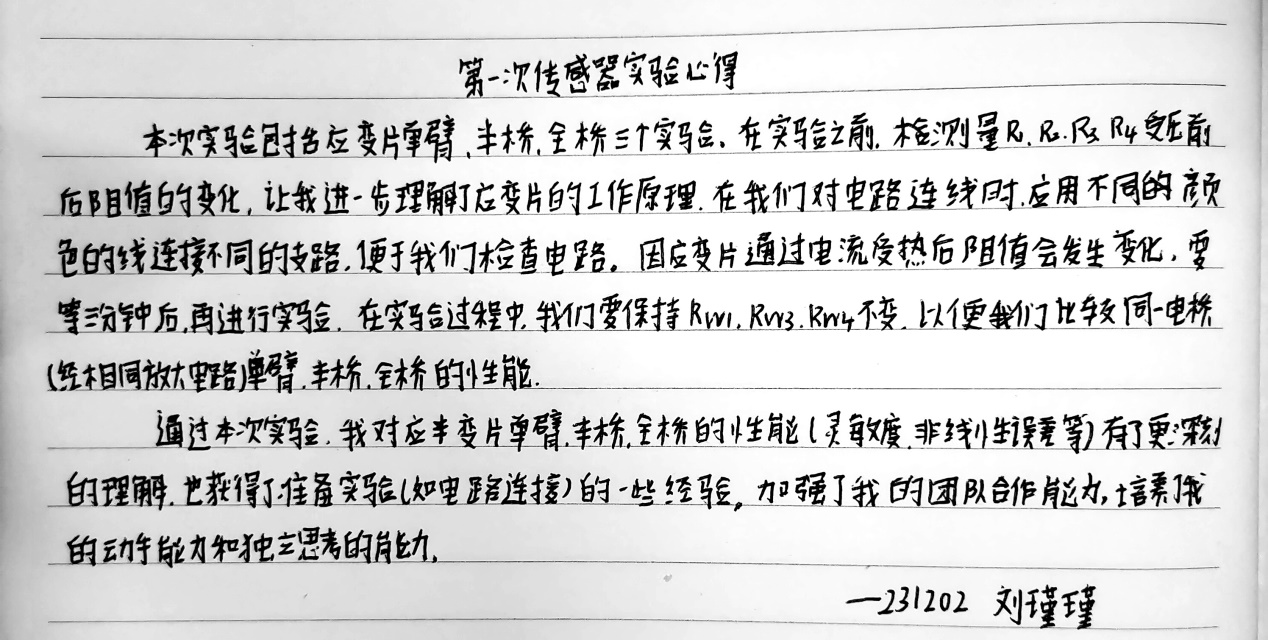 第一次传感器实验心得
本次实验包括应变片单臂、半桥、全桥三个实验。在实验之前,检测量R1、R2、R3 R4受压前
后阻值的变化,让我进一步理解了应变片的工作原理。在我们对电路连线时,应用不同的颜
色的线连接不同的支路,便于我们检查电路。因应变片通过电流受热后阻值会发生变化,要
等三分钟后,再进行实验。在实验过程中,我们要保持Rw1、Rw3、Rw4不变,以便我们比较同一电桥
(经相同放大电路)单臂、半桥、全桥的性能。
通过本次实验,我对应半变片单臂、半桥、全桥的性能(灵敏度、非线性误差等)有了更深刻
的理解,也获得了准备实验(如电路连接)的一些经验,加强了我的团队合作能力,培养了我
的动手能力和独立思考的能力。
—231202 刘瑾瑾